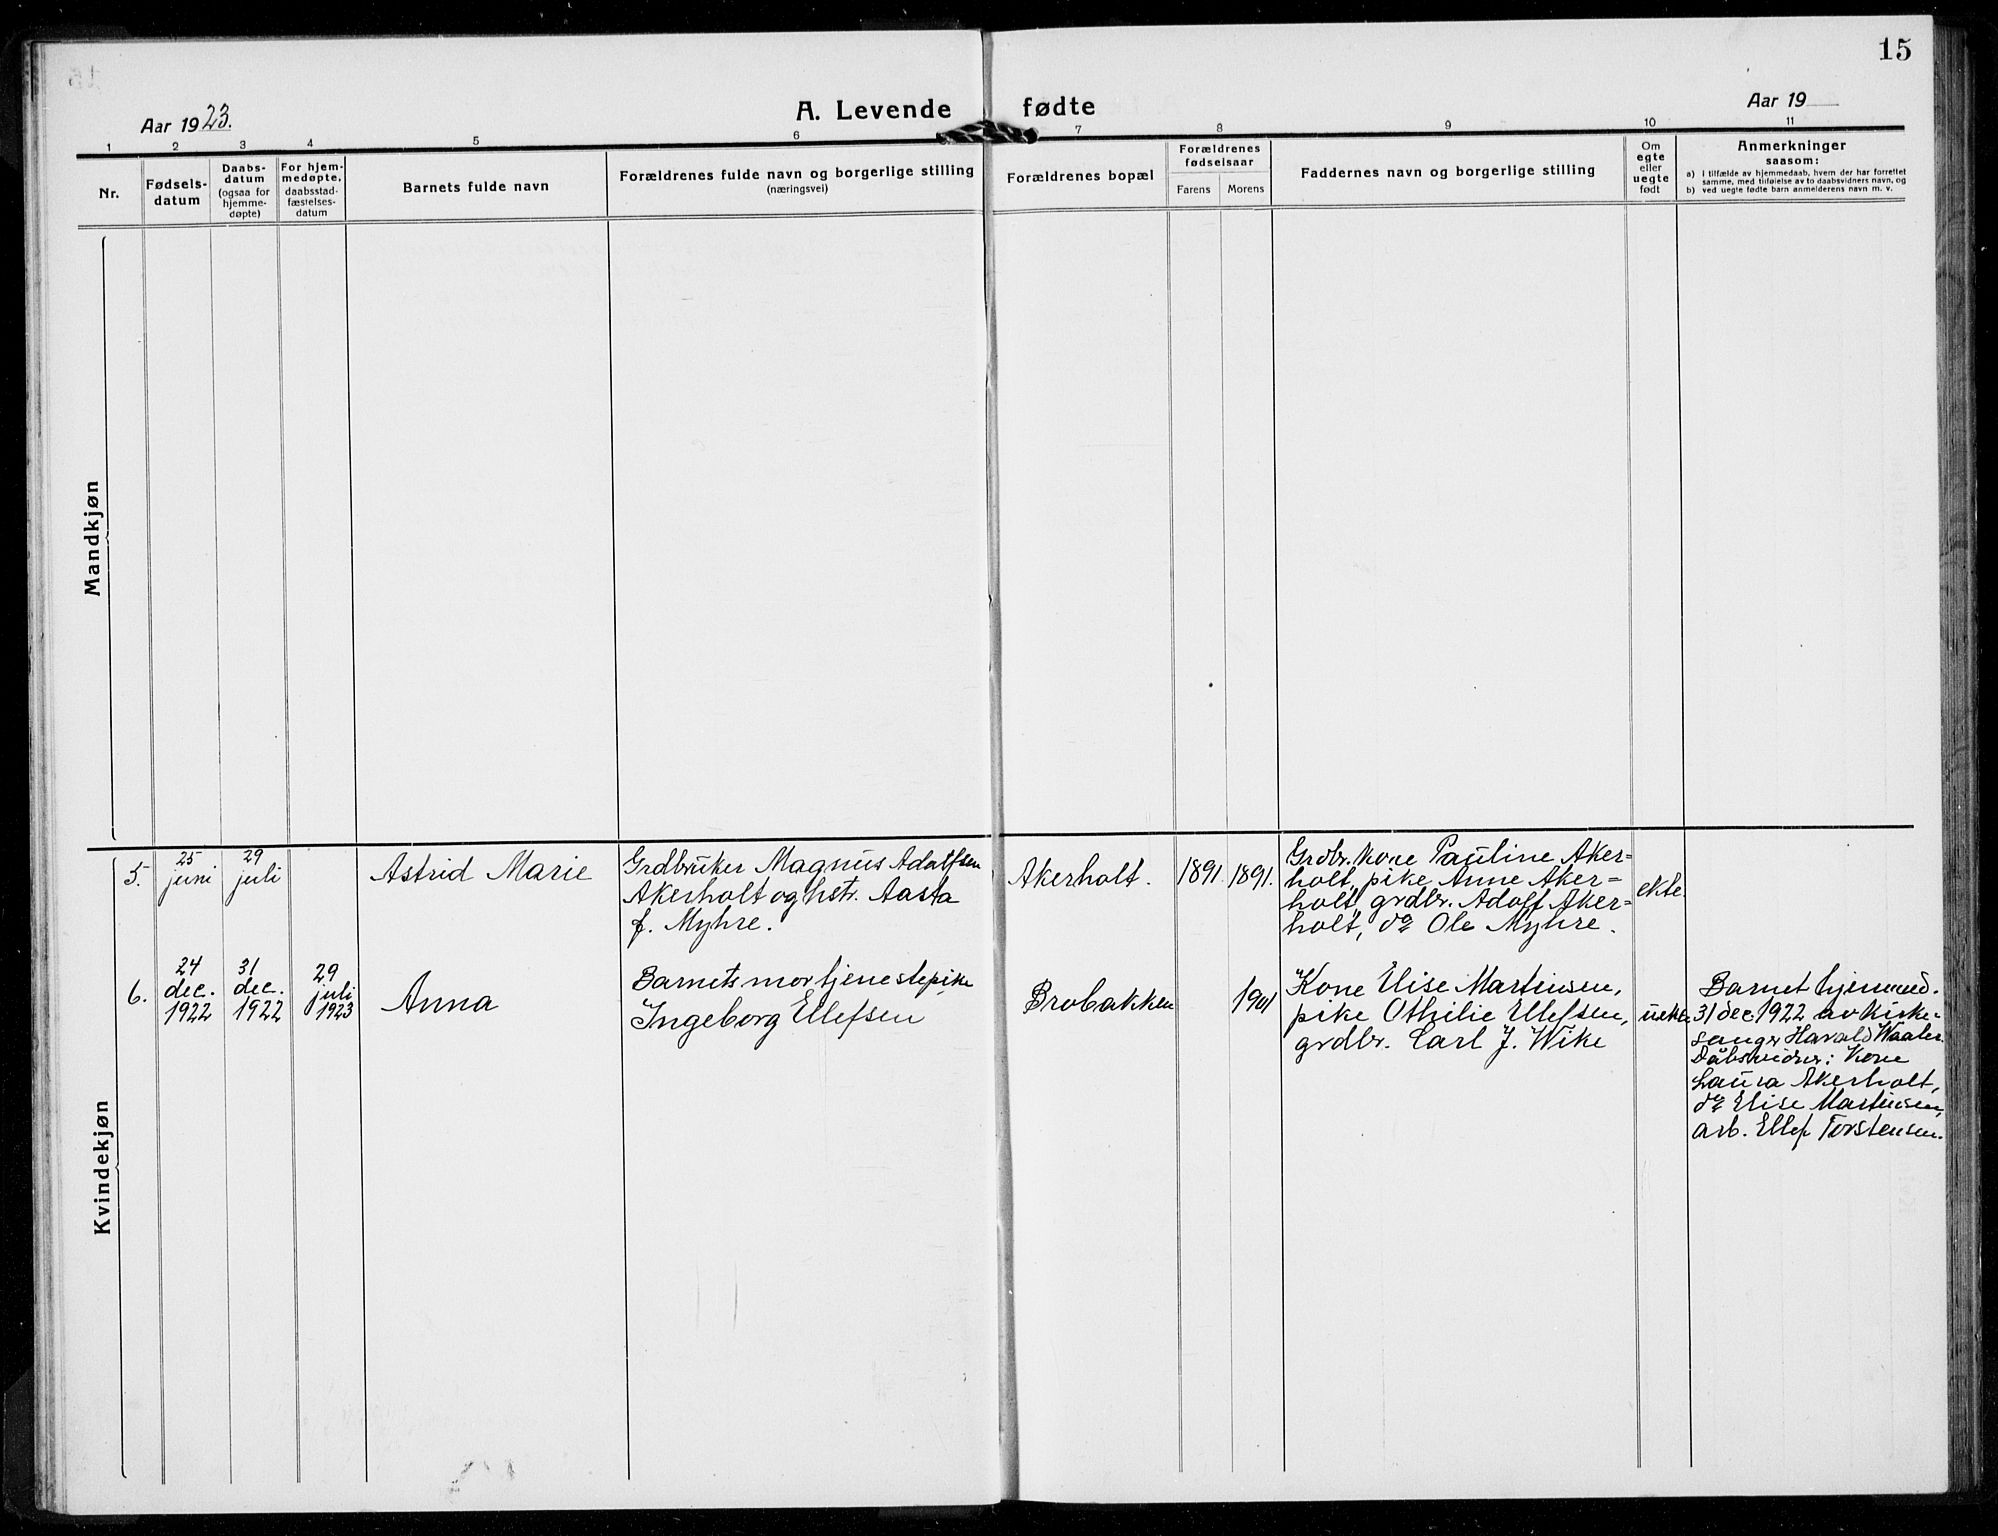 15
Aar 1923.
A. Levende fødte
Aar 19
1 2 3 4 5 6 7 8 9 10 11
Nr.
Fødsels-
datum
Daabs-
datum
(ogsaa for
hjemme-
døpte)
For hjem-
medøpte,
daabsstad-
fæstelses-
datum
Barnets fulde navn
Forældrenes fulde navn og borgerlige stilling
(næringsvei)
Forældrenes bopæl
Forældrenes
fødselsaar
Farens Morens
Faddernes navn og borgerlige stilling
Om
egte
eller
uegte
født
Anmerkninger
saasom:
a) i tilfælde av hjemmedaab, hvem der har forrettet
samme, med tilføielse av to daabsvidners navn, og
b) ved uegte fødte barn anmelderens navn m. v.
Mandkjøn
Kvindekjøn
5.
25
juni
29
juli
Astrid Marie
Grdbruker Magnus Adolfsen
Akerholt og hstr. Aasta
f. Myhre.
Akerholt.
1891.
1891.
Grdbr. kone Pauline Aker=
holt, pike Anne Aker=
holt, grdbr. Adolf Aker=
holt, do Ole Myhre.
ekte.
6.
24
dec.
1922
31
dec.
1922
29
juli
1923
Anna
Barnets mor tjenestepike
Ingeborg Ellefsen
Brobakken
1901
Kone Elise Martinsen,
pike Othilie Ellefsen,
grdbr. Carl J. Wike
uekte
Barnet hjemmed.
31 dec. 1922 av kirke-
sanger Harald Waaler.
Dåbsvidner: Kone
Laura Akerholt,
do Elise Martinsen,
arb. Ellef Torstensen.